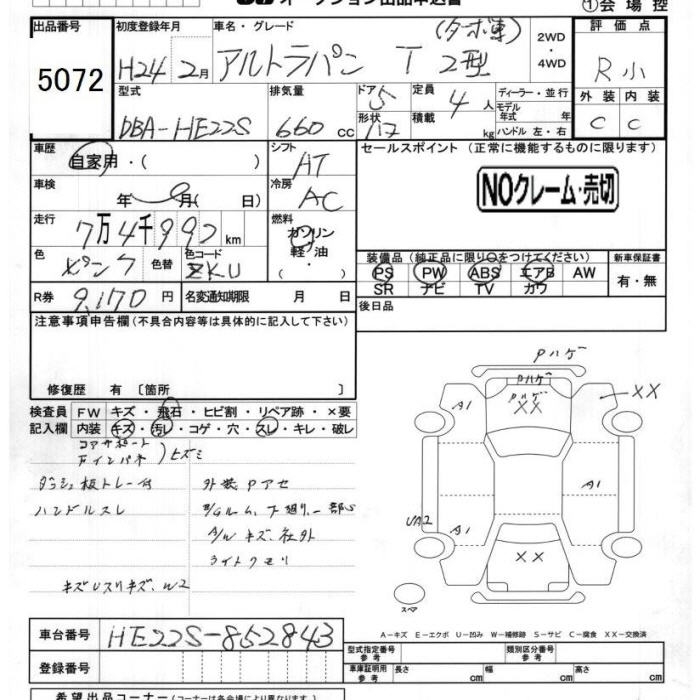 ①会場控
出品番号
5072
初度登録年月
H24 2月
車名・グレード
(ターボ車)
アルトラパン T 2型
2WD
・
4WD
評価点
R小
外装 内装
C C
型式
DBA-HE22S
排気量
660 cc
ドア 5
形状 17
定員 4 人
積載 kg
ディーラー・並行
モデル
年式 年
ハンドル 左・右
車歴
自家用・( )
シフト
AT
セールスポイント (正常に機能するものに限ります)
NOクレーム・売切
車検
年 月( 日)
冷房
AC
走行
7万4千992km
燃料
ガソリン
軽・油
・
色
ピンク
色替
色コード
ZKU
装備品 (純正品に限り○をつけてください)
PS PW ABS エアB AW
SR ナビ TV カワ
新車保証書
有・無
R券 9,170円
名変通知期限 月 日
後日品
注意事項申告欄(不具合内容等は具体的に記入して下さい)
修復歴 有 〔箇所 〕
検査員
記入欄
FW キズ・飛石・ヒビ割・リペア跡・×要
内装 キズ・汚レ・コゲ・穴・スレ・キレ・破レ
コアサポート
Fインパネ
)ヒズミ
ダッシュ板トレー付
ハンドルスレ
外装Pアセ
B/Gルーム、下廻リ一部S
A/Wキズ、社外
ライトクモリ
キズUスリキズ、W2
Pハゲ
Pハゲ
Pハゲ
XX
A1
XX
A1
A1
UA2
XX
スペア
A-キズ E-エクボ U-凹み W-補修跡 S-サビ C-腐食 XX-交換済
車台番号
HE22S-852843
登録番号
型式指定番号
参考
類別区分番号
参考
車庫証明用
参考
長さ cm
幅 cm
高さ cm
希望出品コーナー(コーナーは各会場により異なります)